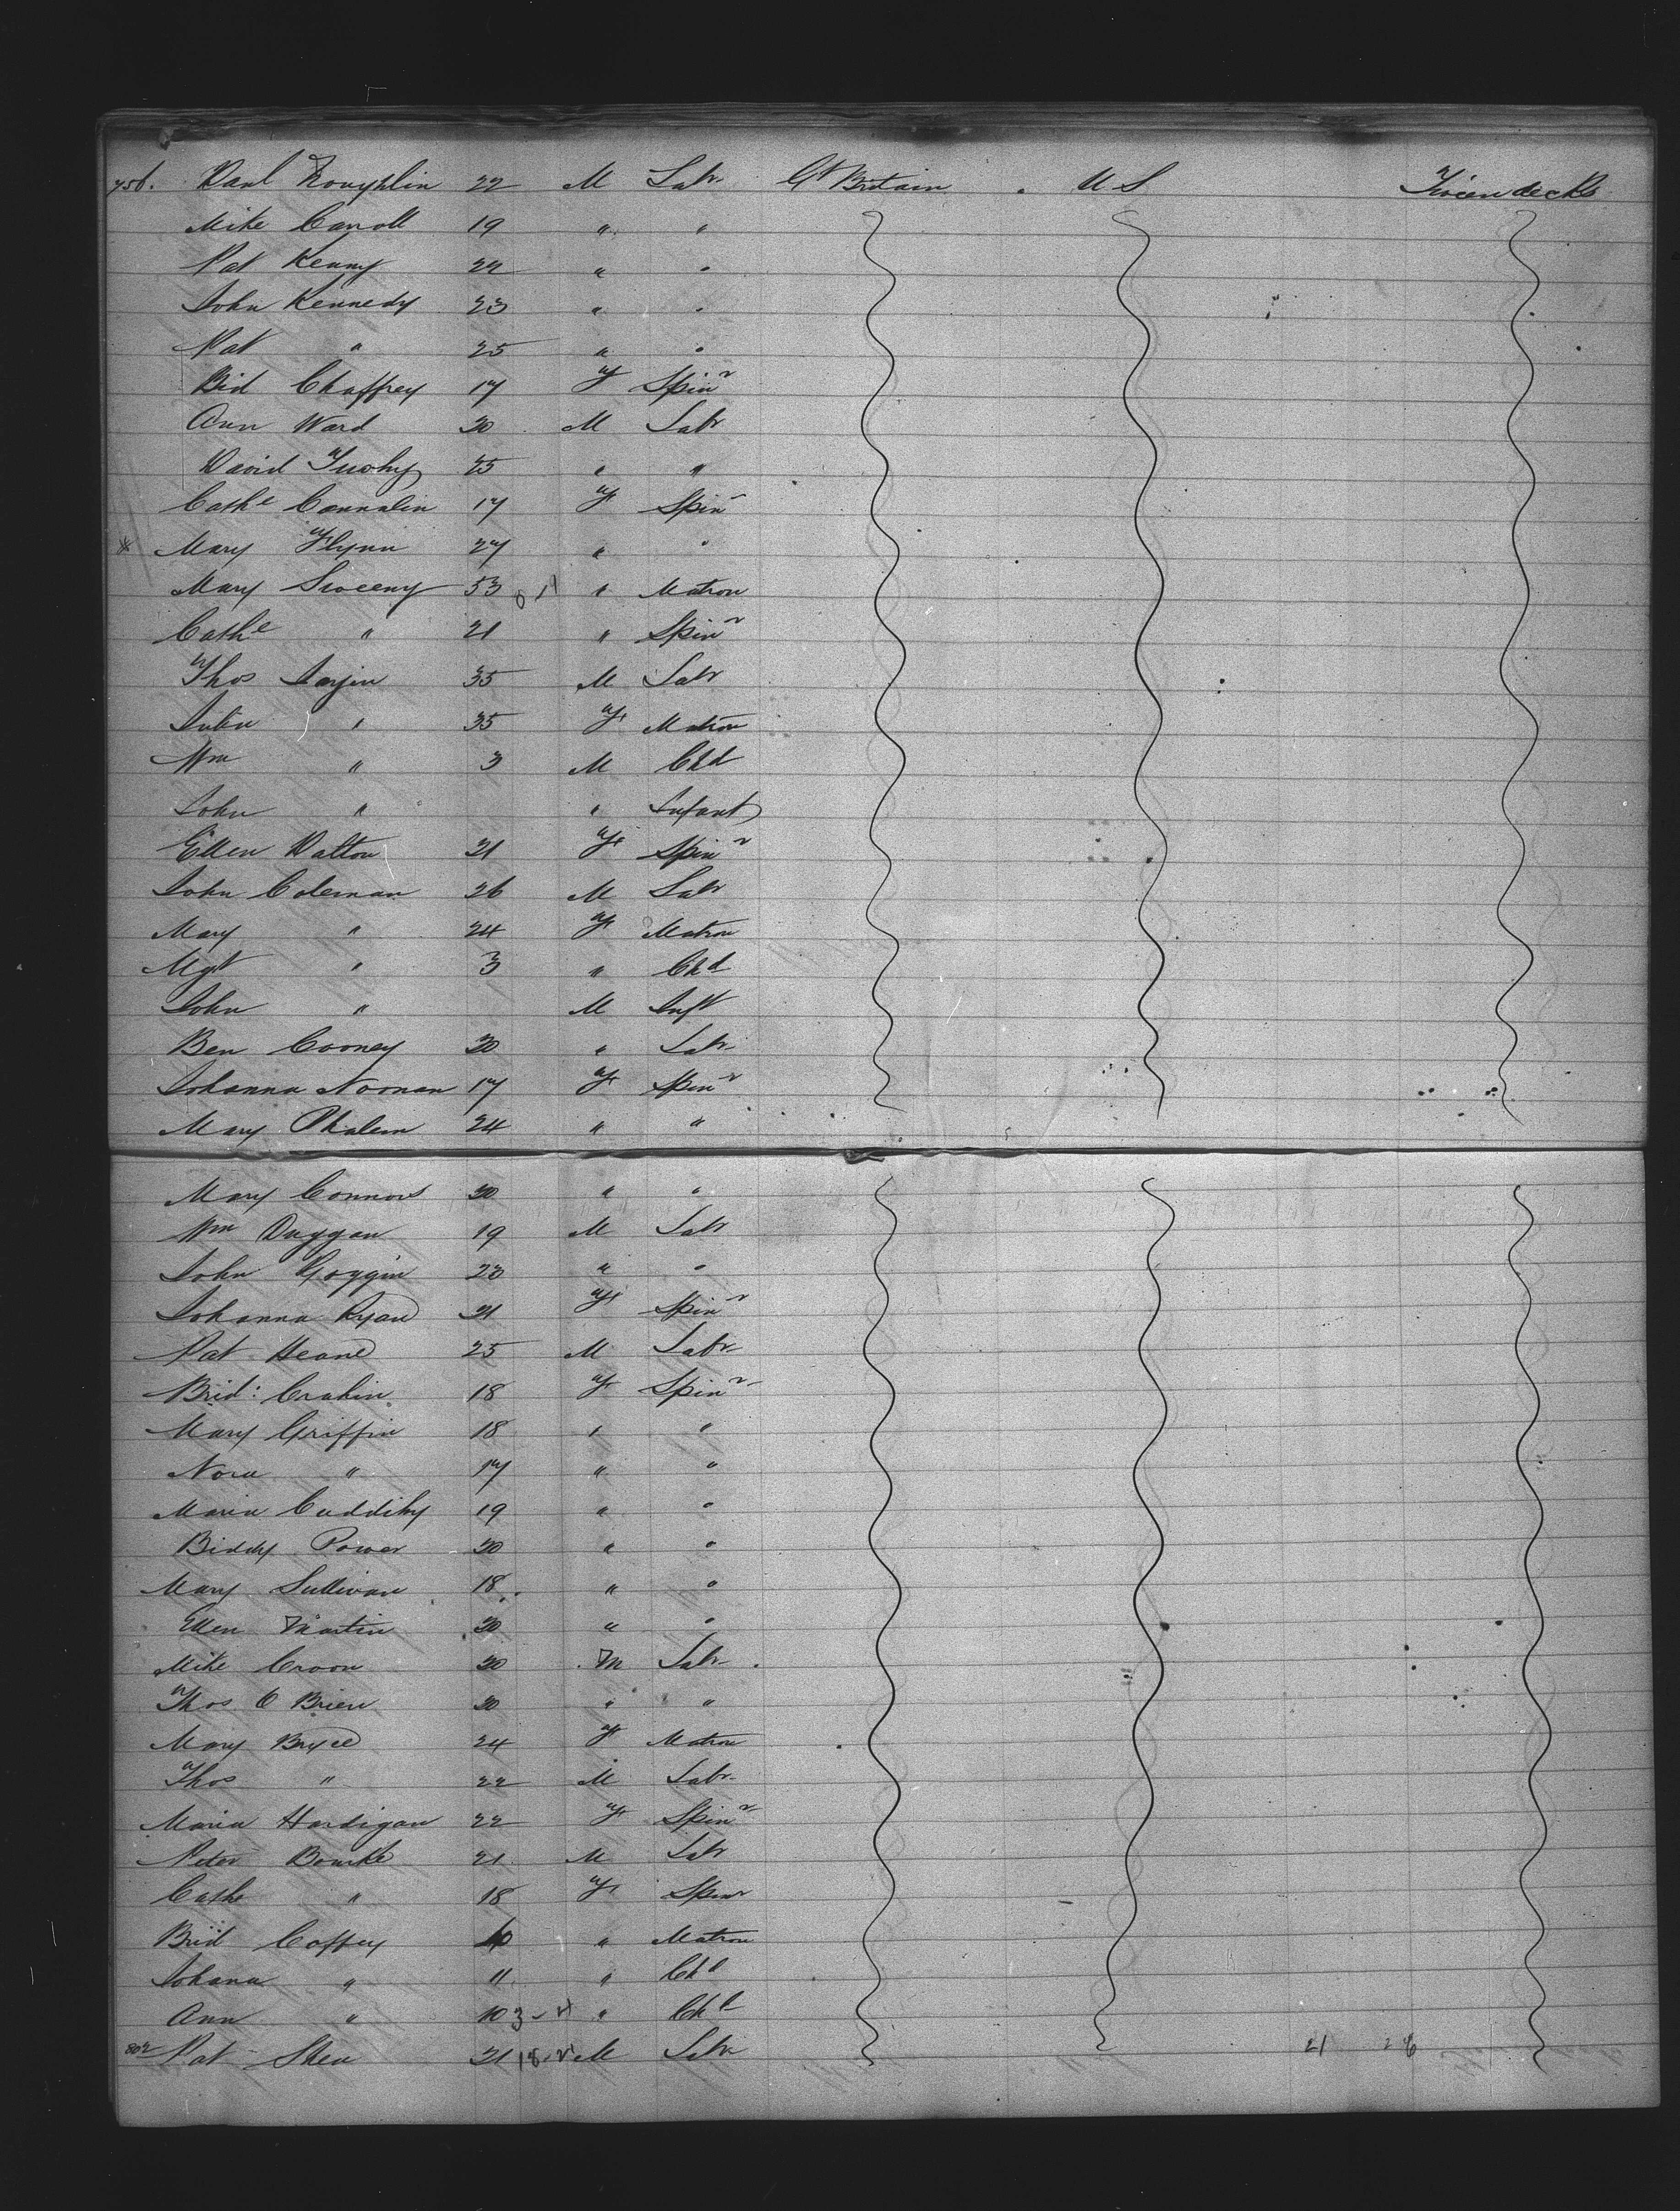 756. Danl Loughlin 22 M Labr Gt Britain U S Tween decks
Mike Carroll 19 " "
Pat Kenny 22 " "
John Kennedy 23 " "
Pat " 25 " "
Bid Chaffrey 17 F Spinr
Ann Ward 20 M Labr
David Tuohy 25 " "
Cathe Connalin 17 F Spinr
* Mary Flynn 27 " "
Mary Sweeny 53 " Matron
Cathe " 21 " Spinr
Thos 35 M Labr
" 35 F Matron
Wm " 3 M Chd
John " " Infant
Ellen Dalton 21 F Spinr
John Coleman 26 M Labr
Mary " 24 F Matron
Mgt " 3 " Chd
John " M Inft
Ben Cooney 20 " Labr
Johanna Noonan 17 F Spinr
Mary Phalem 24 " "
Mary Connors 20 " "
Wm Duggan 19 M Labr
John Goggin 20 " "
Johanna Ryan 21 F Spinr
Pat Heane 25 M Labr
Brid: Crahin 18 F Spinr
Mary Griffin 18 " "
Nora " 17 " "
Maria Cuddihy 19 " "
Biddy Power 20 " "
Mary Sullivan 18 " "
Ellen Martin 20 " "
Mike Croon 20 M Labr
Thos O Brien 20 " "
Mary Bryce 24 F Matron
Thos " 22 M Labr
Maria Hardigan 22 F Spinr
Peter Bourke 21 M Labr
Cathe " 18 F Spinr
Brid Coffey 40 " Matron
Johana " 11 " Chd
Ann " 10 " Chd
802 Pat Shea 21 M Labr 21 26